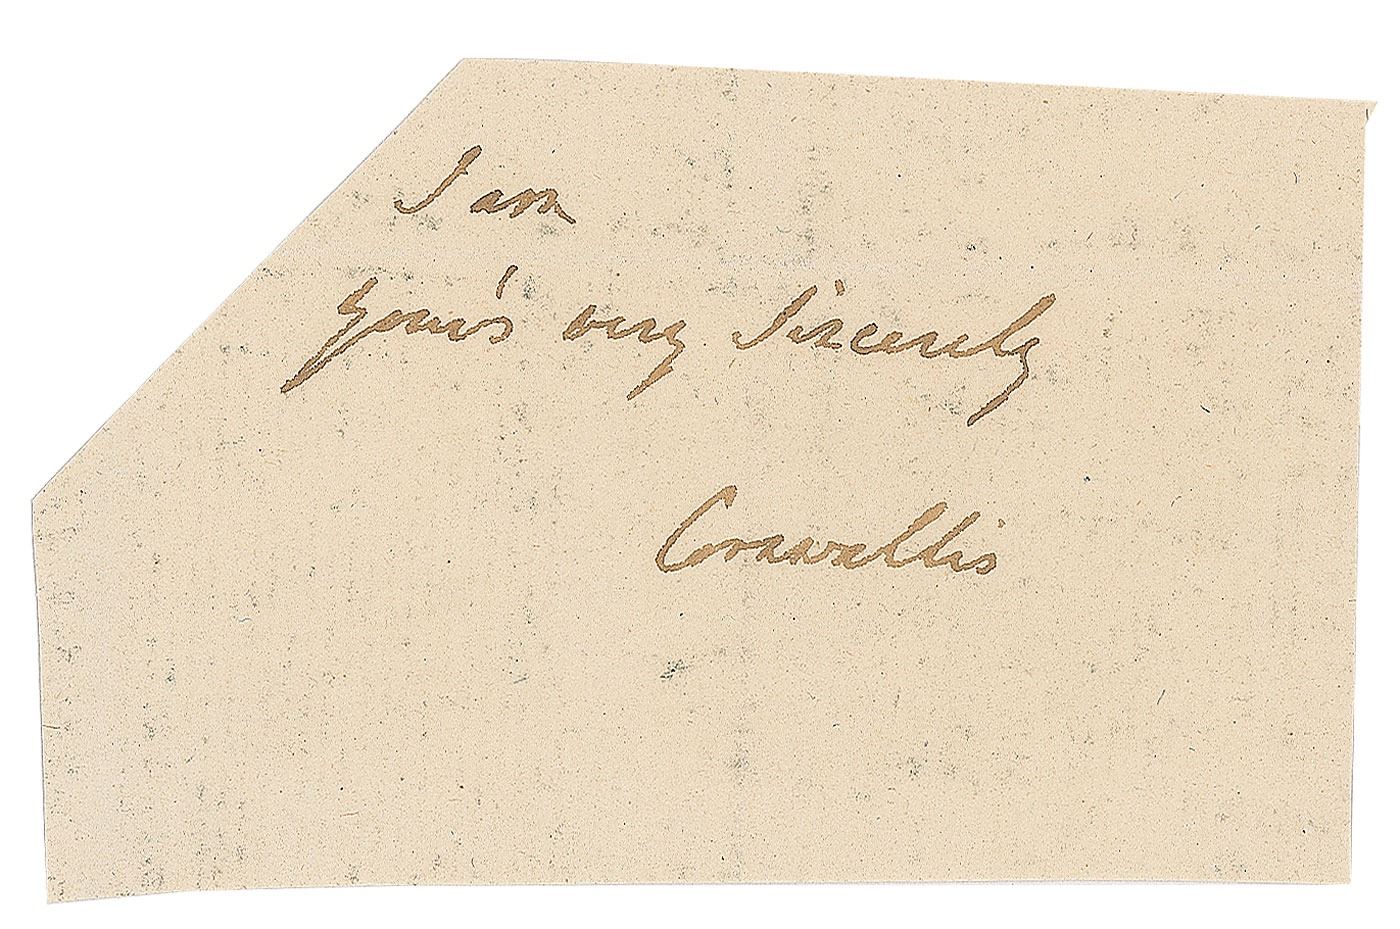 I am
your's very Sincerely
Cornwallis